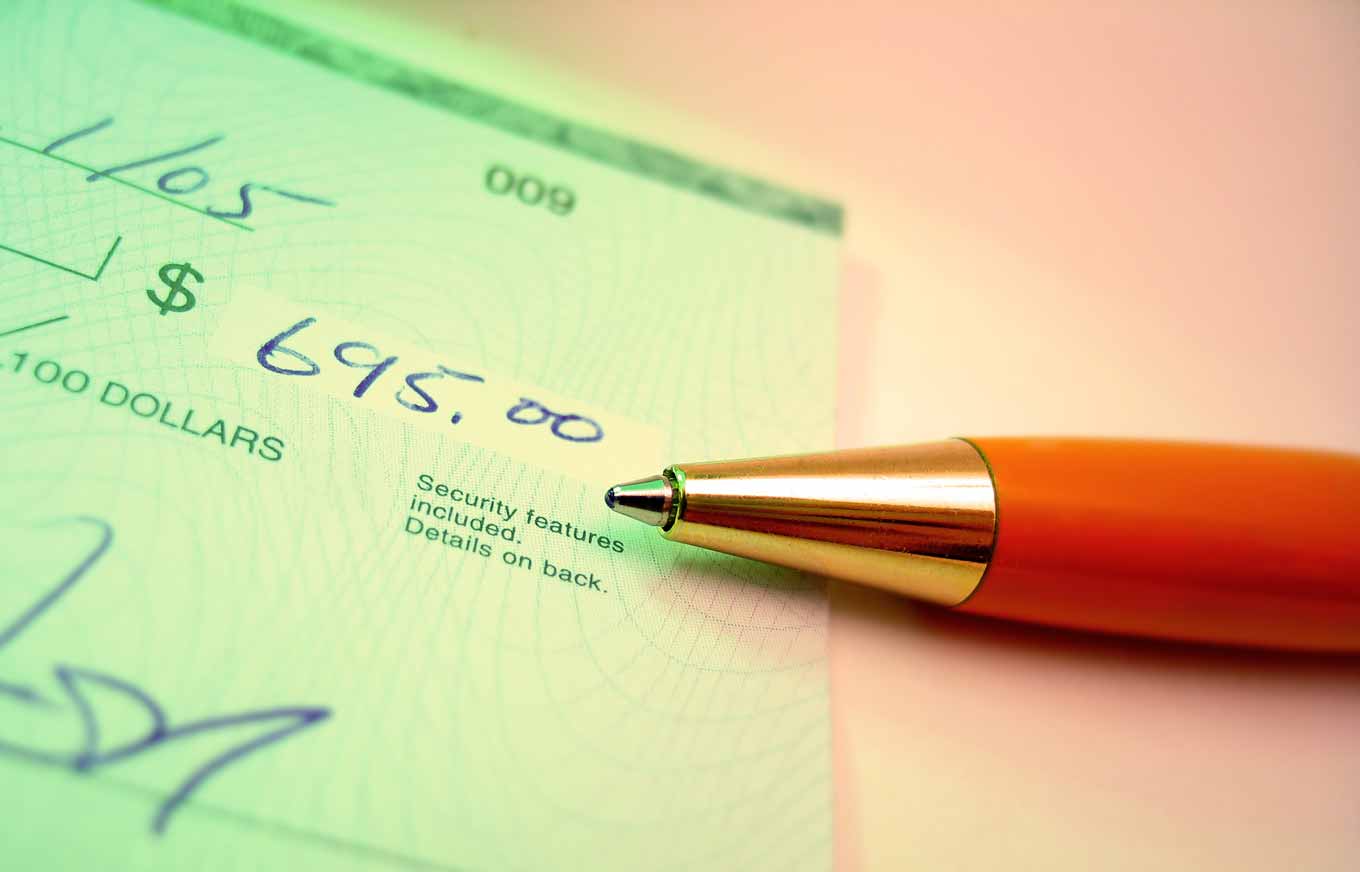 009
1/05
$ 695.00
100 DOLLARS
Security features
included.
Details on back.